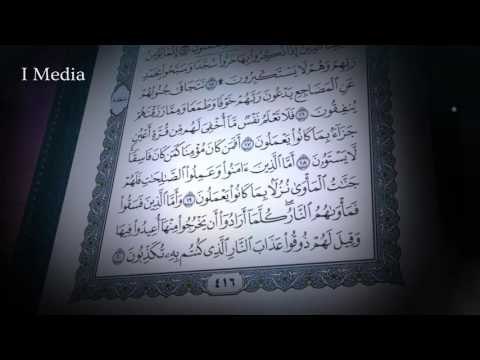 I Media
ٱلَّذِينَ إِذَا ذُكِّرُوا۟ بِهَا خَرُّوا۟ سُجَّدًا وَسَبَّحُوا۟ بِحَمْدِ
رَبِّهِمْ وَهُمْ لَا يَسْتَكْبِرُونَ ۩ ١٥ تَتَجَافَىٰ جُنُوبُهُمْ
عَنِ ٱلْمَضَاجِعِ يَدْعُونَ رَبَّهُمْ خَوْفًا وَطَمَعًا وَمِمَّا رَزَقْنَٰهُمْ
يُنفِقُونَ ١٦ فَلَا تَعْلَمُ نَفْسٌ مَّآ أُخْفِىَ لَهُم مِّن قُرَّةِ أَعْيُنٍ
جَزَآءًۢ بِمَا كَانُوا۟ يَعْمَلُونَ ١٧ أَفَمَن كَانَ مُؤْمِنًا كَمَن كَانَ فَاسِقًا
لَّا يَسْتَوُۥنَ ١٨ أَمَّا ٱلَّذِينَ ءَامَنُوا۟ وَعَمِلُوا۟ ٱلصَّٰلِحَٰتِ فَلَهُمْ
جَنَّٰتُ ٱلْمَأْوَىٰ نُزُلًۢا بِمَا كَانُوا۟ يَعْمَلُونَ ١٩ وَأَمَّا ٱلَّذِينَ فَسَقُوا۟
فَمَأْوَىٰهُمُ ٱلنَّارُ ۖ كُلَّمَآ أَرَادُوٓا۟ أَن يَخْرُجُوا۟ مِنْهَآ أُعِيدُوا۟ فِيهَا
وَقِيلَ لَهُمْ ذُوقُوا۟ عَذَابَ ٱلنَّارِ ٱلَّذِى كُنتُم بِهِۦ تُكَذِّبُونَ ٢٠
٤١٦